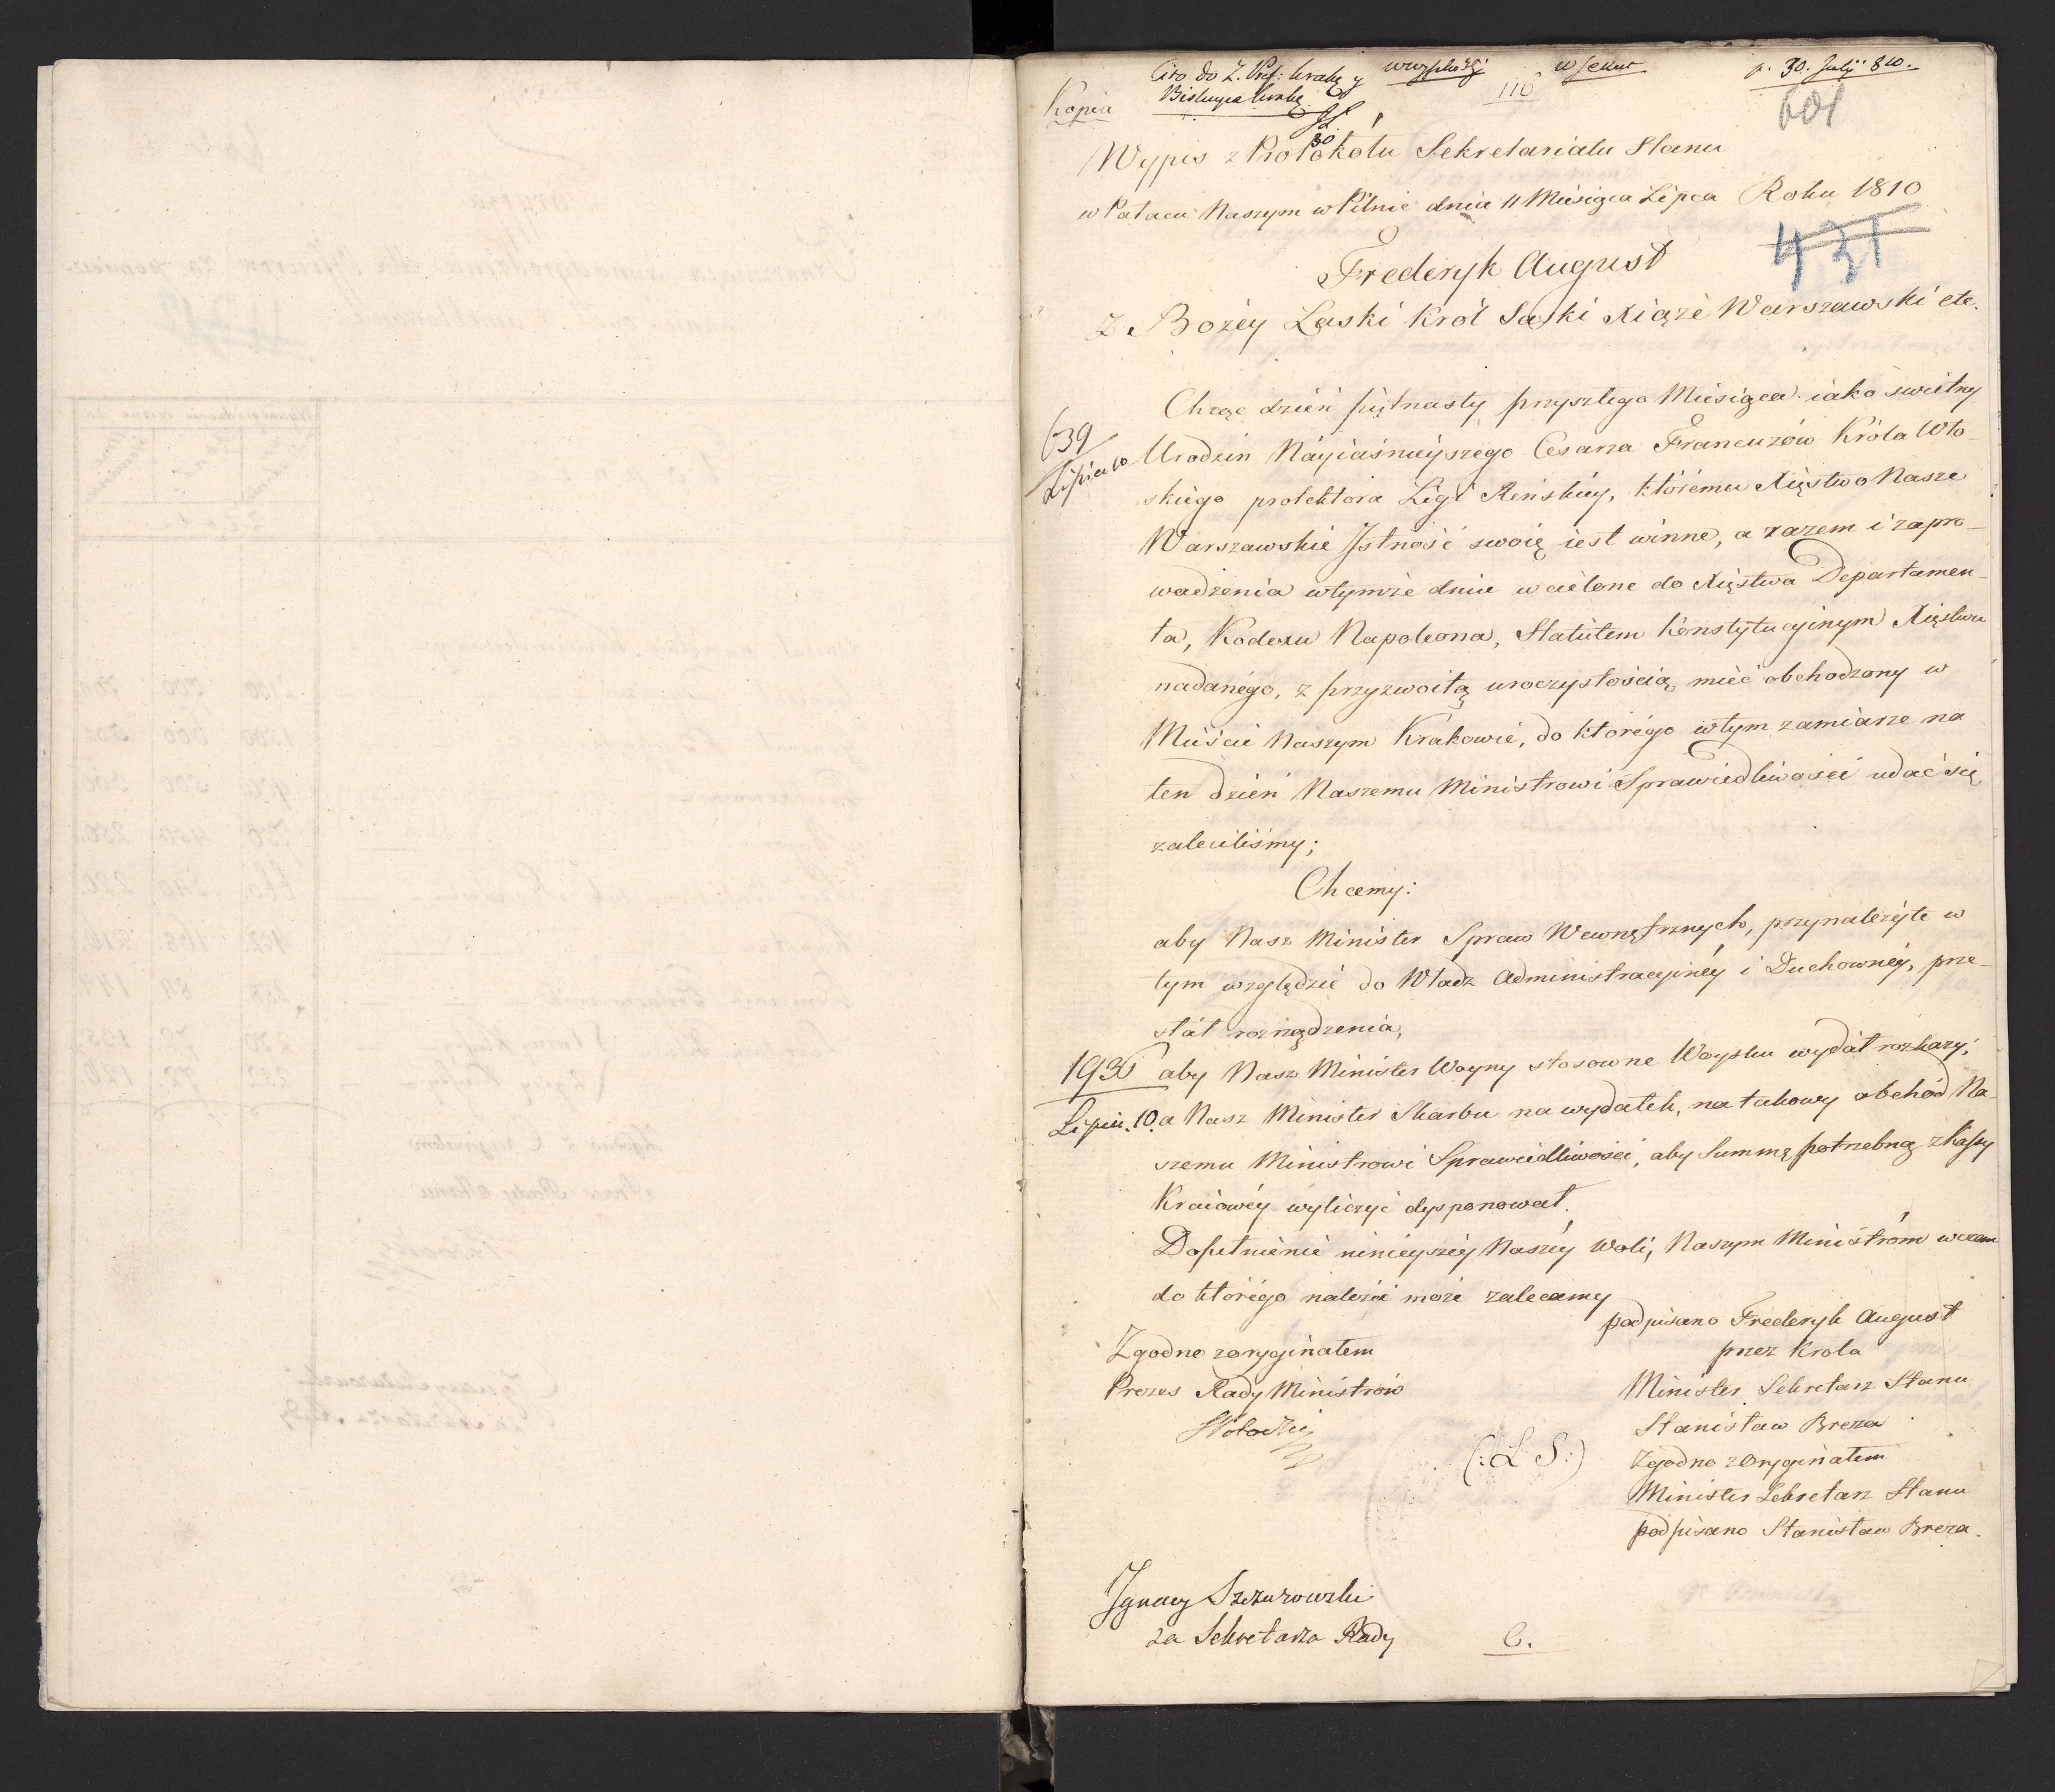 Kopia
Cito do Z. Pref: krakg y
Biskupa krakg
116
p. 30. Julij 810.
601
Wypis z Protokołu Sekretariatu Stanu
w Pałacu Naszym w Pilnic dnia 11 Miesiąca Lipca Roku 1810
431
Fryderyk August
z Bożéy Łaski Król Saski Xiąże Warszawski etc.
639
Lipiec 10
Chcąc dzień piętnasty przyszłego Miesiąca iako swietny
Urodzin Nayiaśnieyszego Cesarza Francuzów Króla Wło-
skiego protektora Ligi Reńskiéy, którému Xięstwo Nasze
Warszawskie Jstność swoię iest winne, a razem i zapro-
wadzenia wtymże dniu w cielone do Xięstwa Departamen-
ta, Kodexu Napoleona, Statutem konstytucyinym Xięstwu
nadanégo, z przyzwoitą uroczystością mieć obchodzony w
Mieście Naszym Krakowie, do którégo wtym zamiarze na
ten dzień Naszemu Ministrowi Sprawiedliwości udać się
zaleciliśmy;
Chcemy:
aby Nasz Minister Spraw Wewnętrznych, przynależyte w
tym względzie do Władz Administracyinéy i Duchownéy, prze-
słał rozrządzenia,
1936
Lipiec. 10.
aby Nasz Minister Woyny stosowne Woysku wydał rozkazy;
a Nasz Minister Skarbu na wydatek, na takowy obchód Na-
szemu Ministrowi Sprawiedliwości, aby Summę potrzebną z Kassy
Kraiowéy wyliczyć dysponował.
Dopełnienie ninieyszéy Naszéy Woli, Naszym Ministróm wczem
do którégo należeć może zalecamy
podpisano Frederyk August
przez Krola
Minister Sekretarz Stanu
Stanisław Breza
Zgodno z Oryginałem
Minister Sekretarz Stanu
podpisano Stanisław Breza.
Zgodno z oryginałem
Prezes Rady Ministrów
(: L S :)
Jgnacy Szczurowski
za Sekretarza Rady
C.